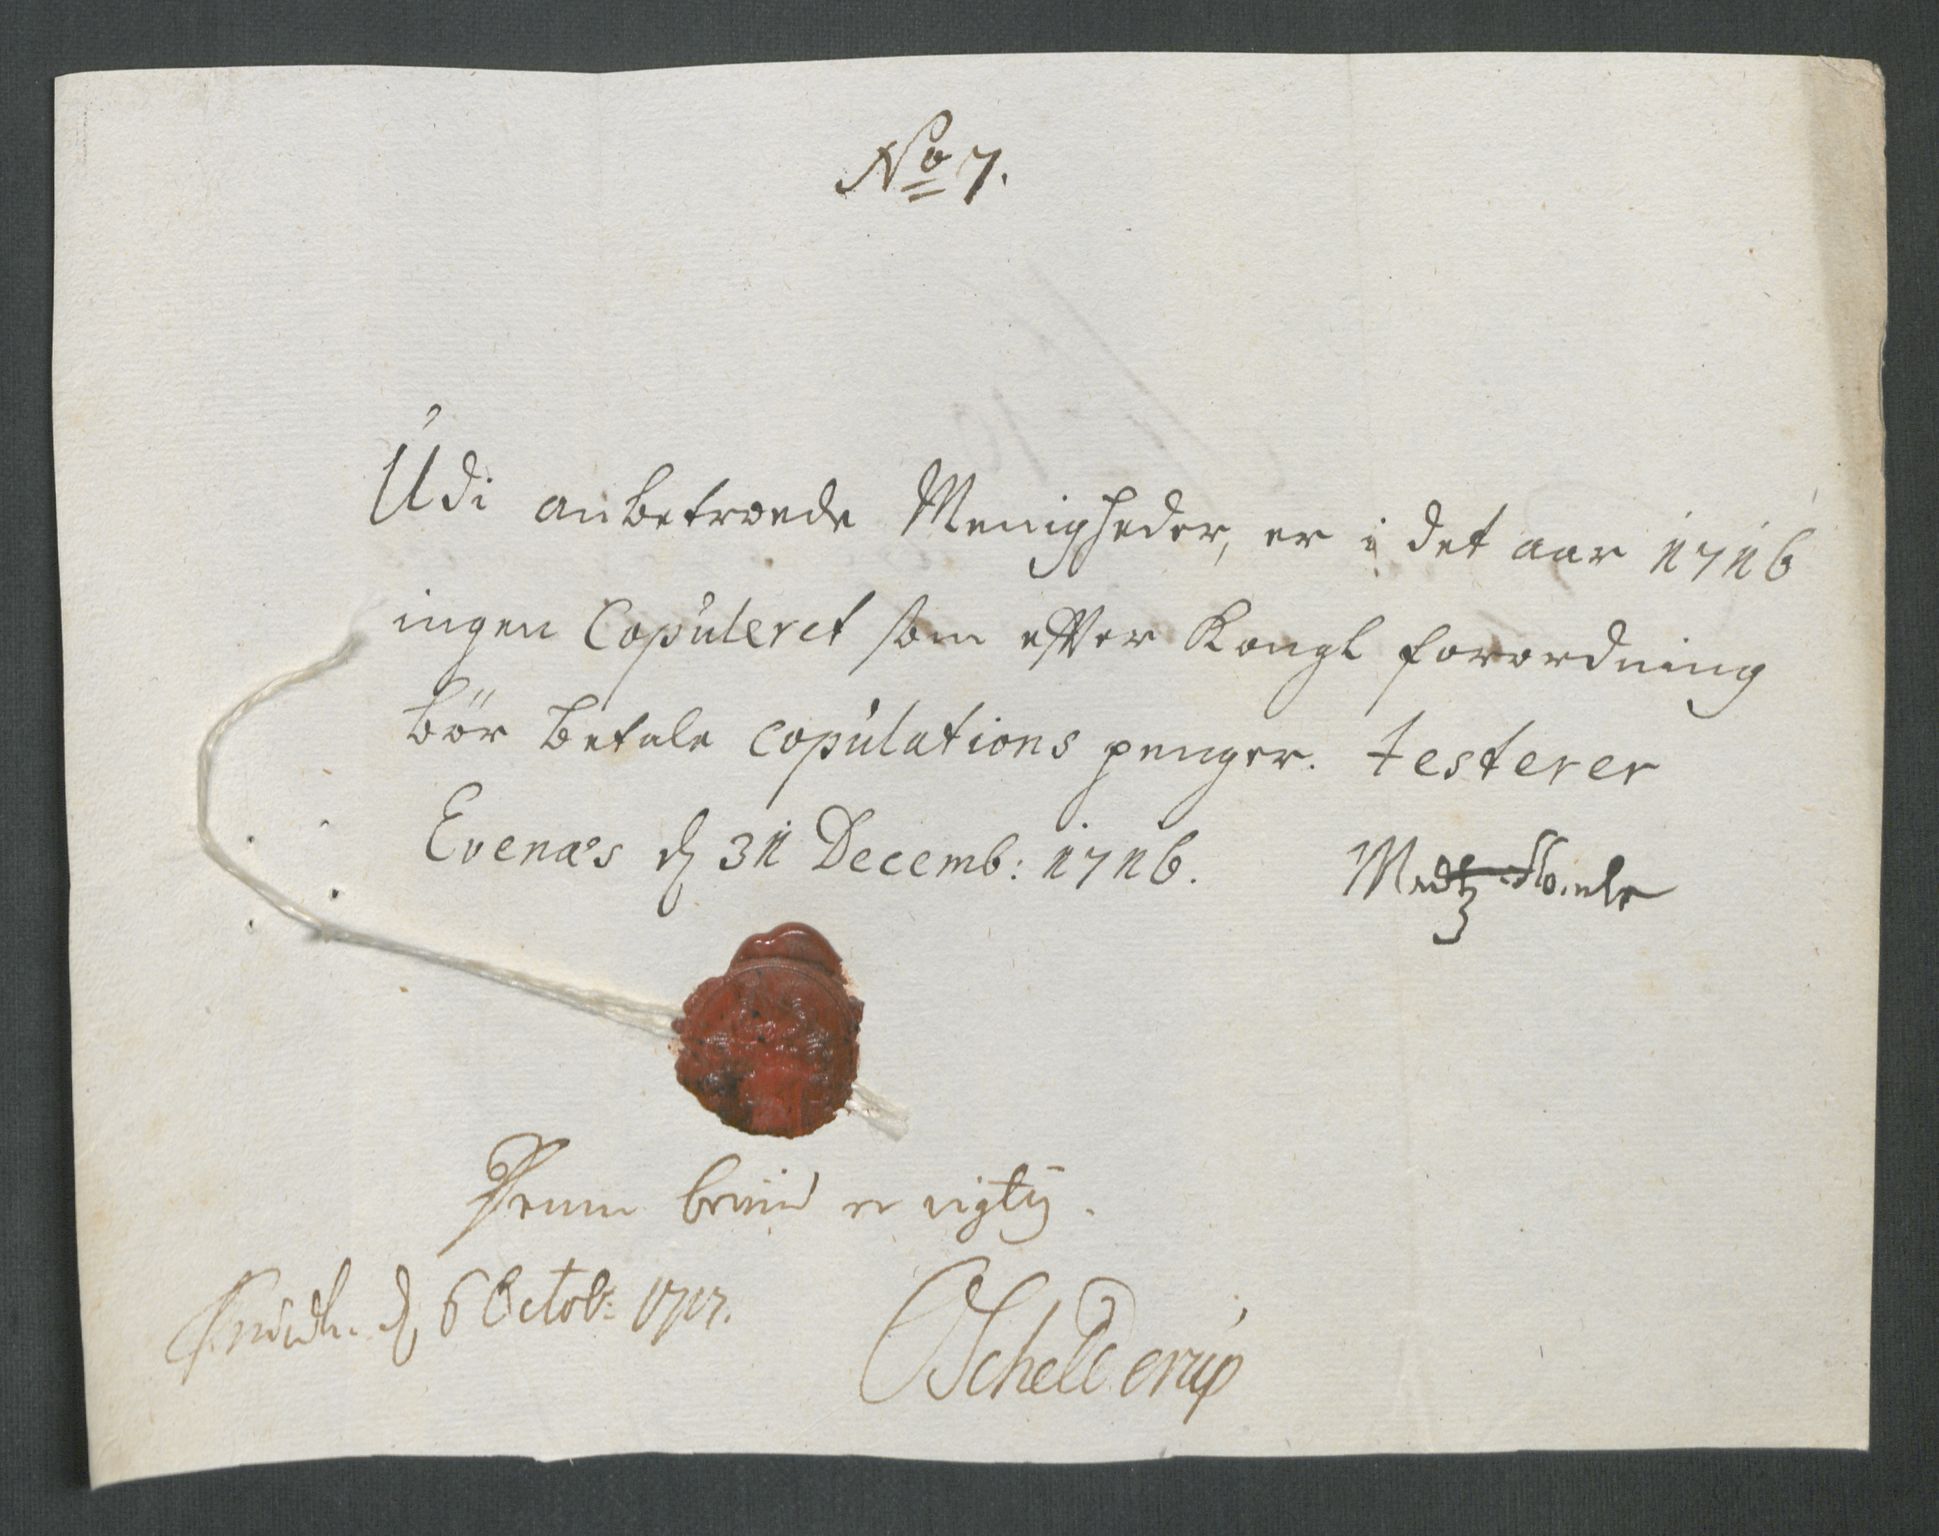 No 7.
Udi anbetroede Menigheder, er i det aar 1716
ingen Copuleret som efter Kongl forordning
bör betale copulations penger. testerer
Evenæs d 31 Decemb: 1716.
Denne beviis er rigtig.
d 6 Octob: 1717.
Schelderup